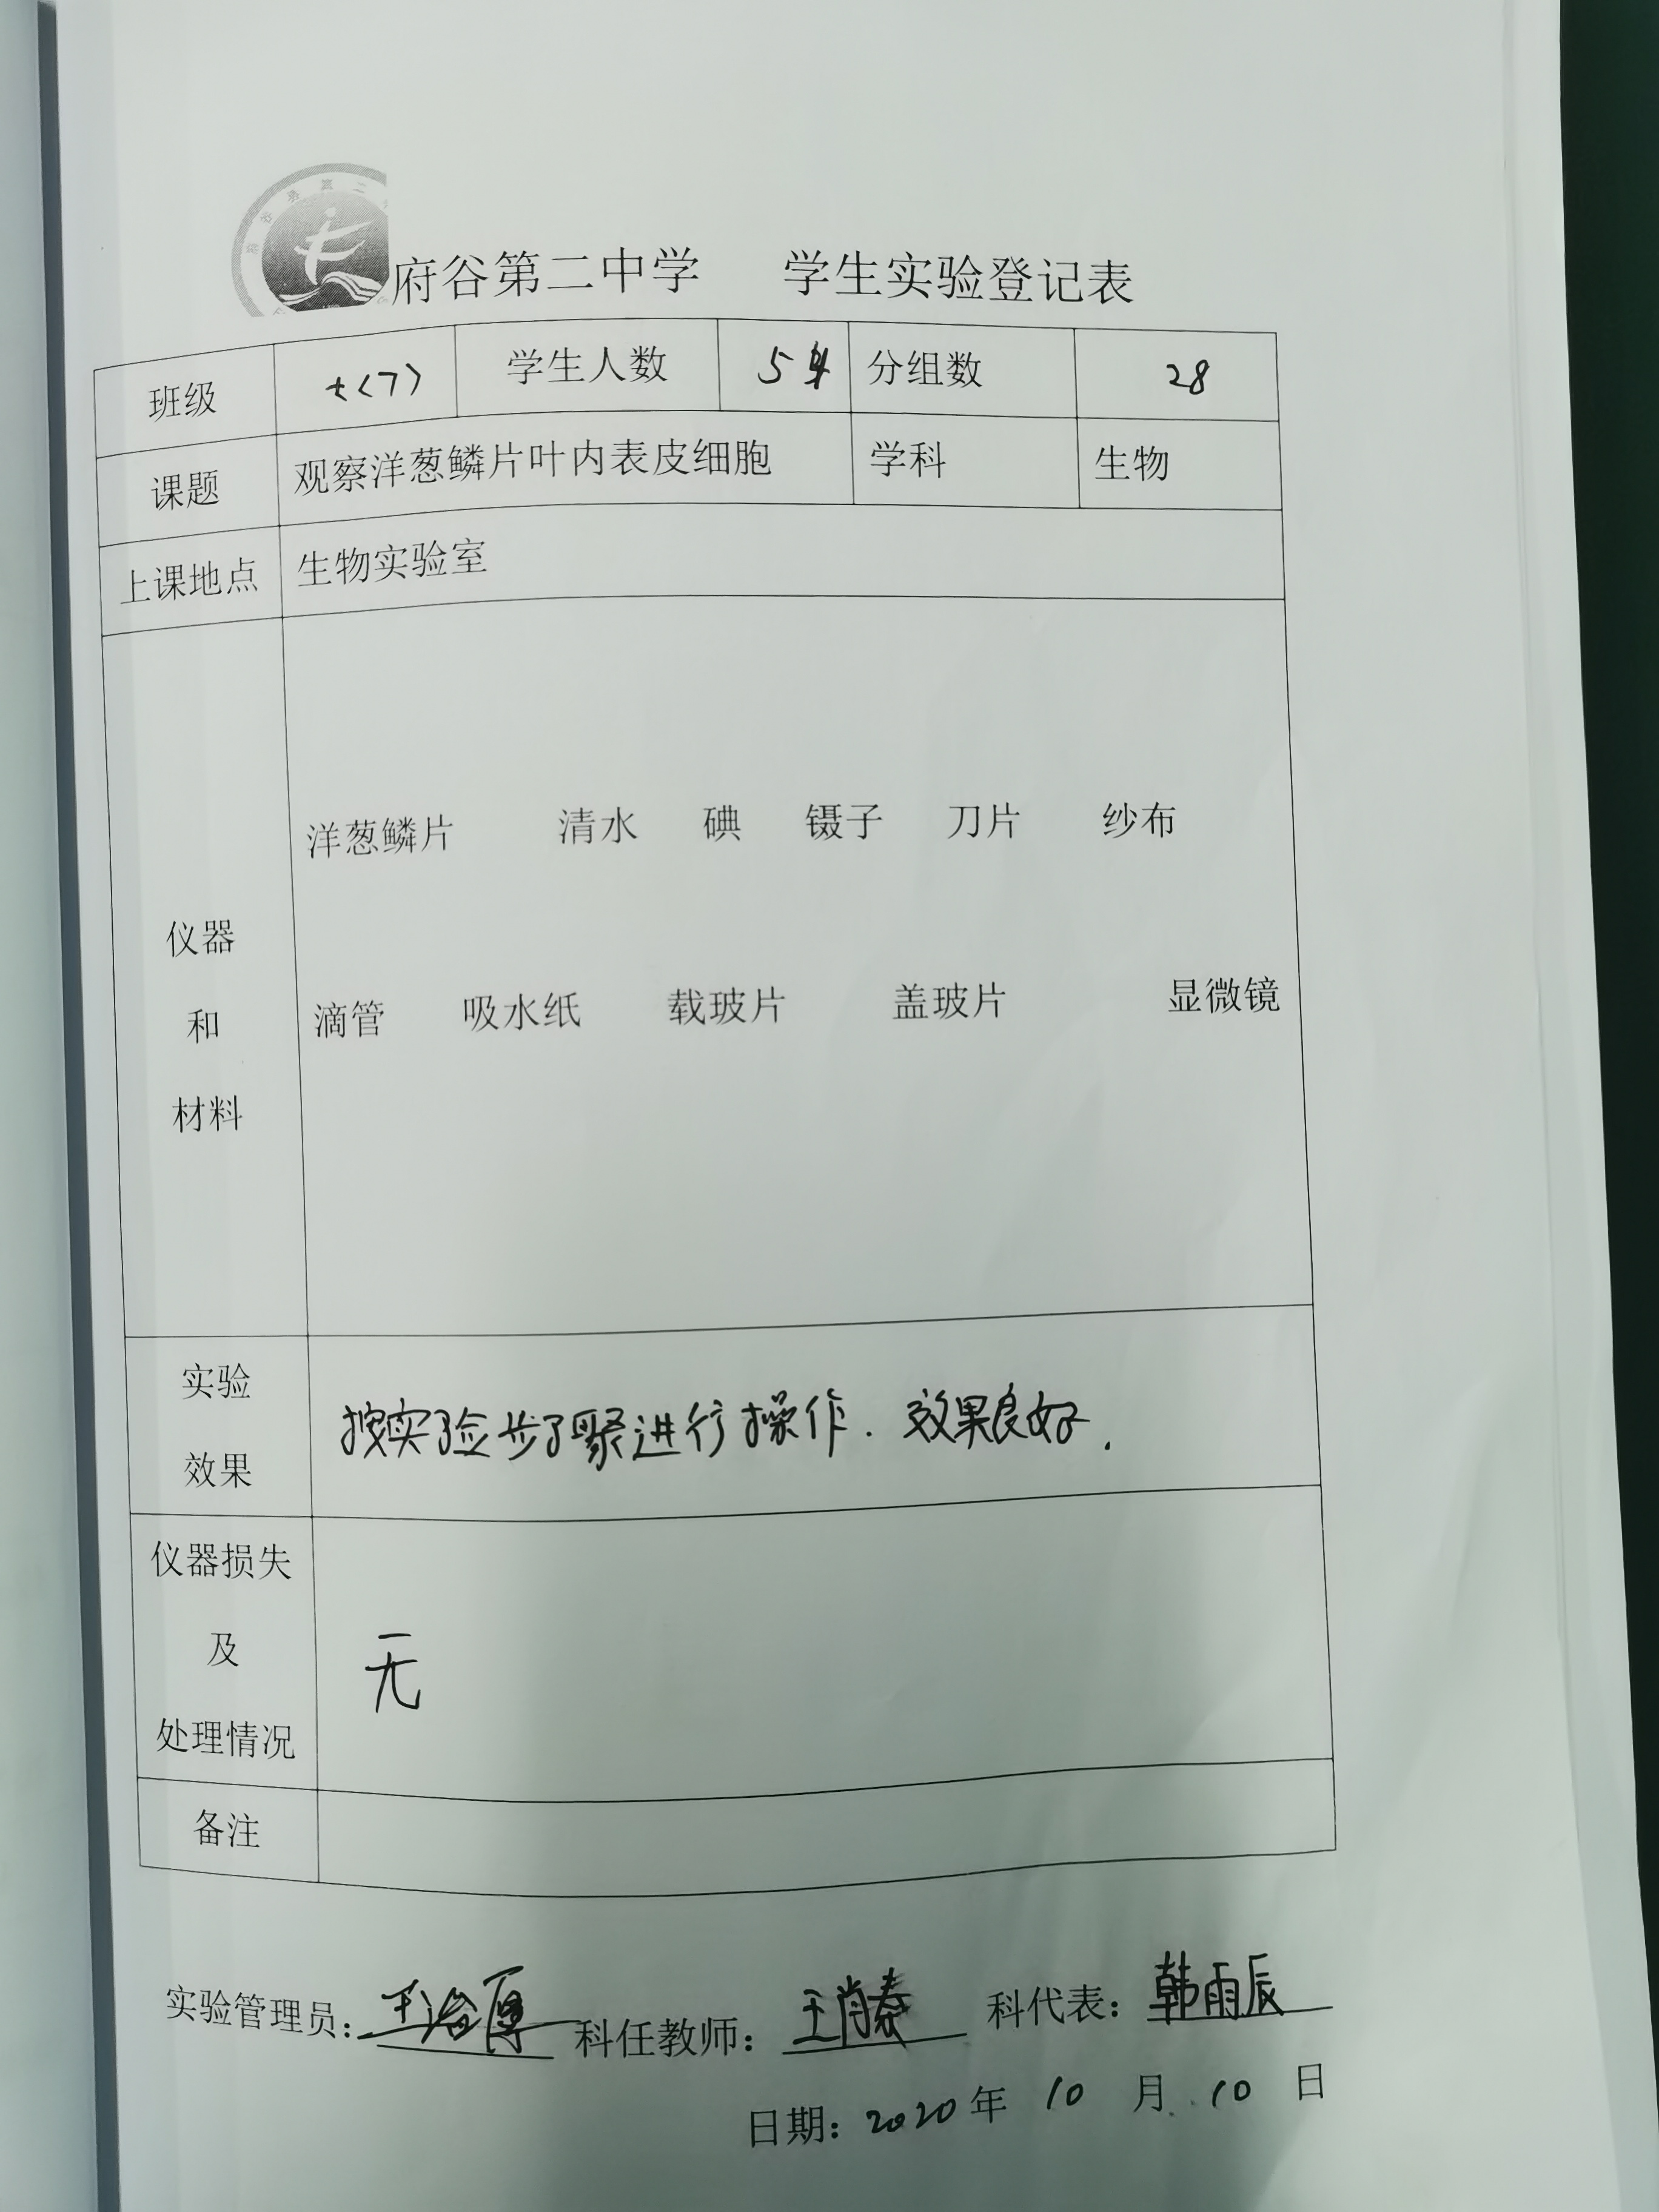 府谷第二中学 学生实验登记表
班级 七(7) 学生人数 分组数 28
课题 观察洋葱鳞片叶内表皮细胞 学科 生物
上课地点 生物实验室
洋葱鳞片 清水 碘 镊子 刀片 纱布
仪器
和
材料
滴管 吸水纸 载玻片 盖玻片 显微镜
实验
效果
按实验步骤进行操作. 效果良好.
仪器损失
及
处理情况
无
备注
实验管理员: 科任教师: 科代表: 韩雨辰
日期: 2020 年 10 月 10 日